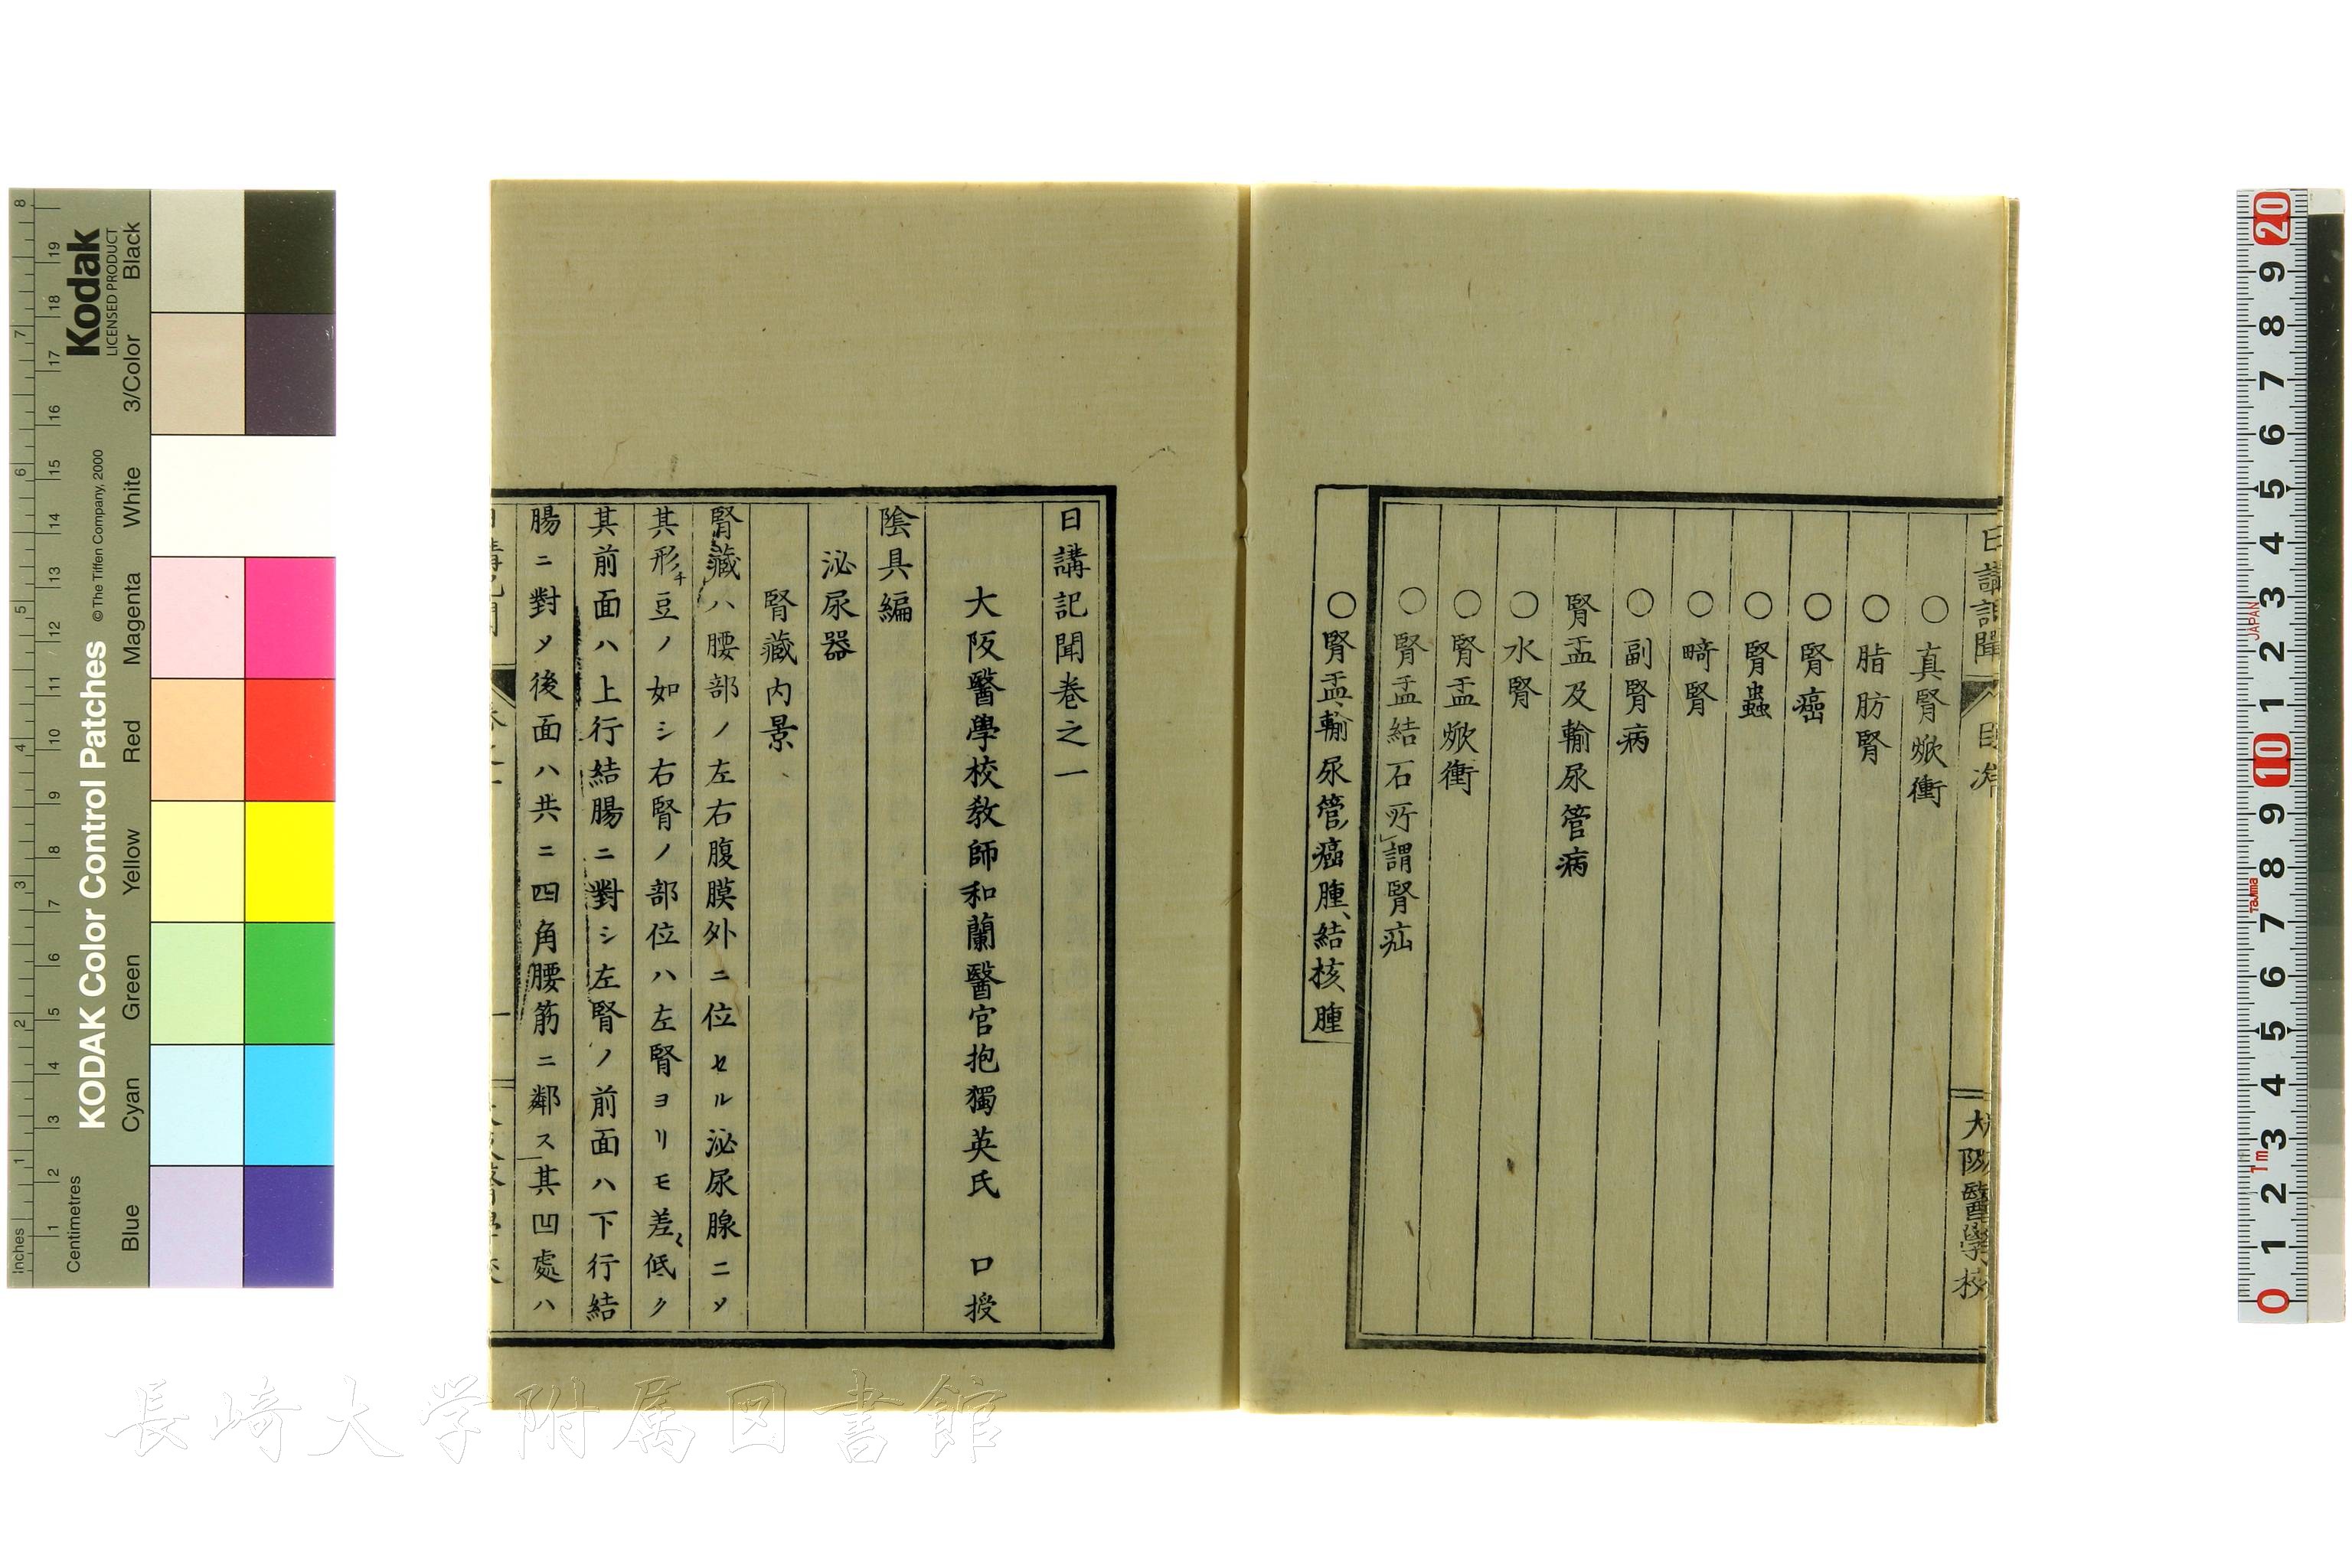 日講記聞
目次
大阪醫學校
○真腎焮衝
○脂肪腎
○腎癌
○腎蟲
○畸腎
○副腎病
腎盂及輸尿管病
○水腎
○腎盂焮衝
○腎盂結石所謂腎疝
○腎盂、輸尿管、癌腫、結核、腫
日講記聞卷之一
大阪醫學校教師和蘭醫官抱獨英氏 口授
陰具編
泌尿器
腎藏内景
腎藏ハ腰部ノ左右腹膜外ニ位セル泌尿腺ニメ
其形チ豆ノ如シ右腎ノ部位ハ左腎ヨリモ差〻低ク
其前面ハ上行結腸ニ對シ左腎ノ前面ハ下行結
腸ニ對メ後面ハ共ニ四角腰筋ニ鄰ス其凹處ハ
Kodak
LICENSED PRODUCT
KODAK Color Control Patches
© The Tiffen Company, 2000
Black
3/Color
White
Magenta
Red
Yellow
Green
Cyan
Blue
Inches 1 2 3 4 5 6 7 8
Centimetres 1 2 3 4 5 6 7 8 9 10 11 12 13 14 15 16 17 18 19
20 9 8 7 6 5 4 3 2 1 10 9 8 7 6 5 4 3 2 1 0
JAPAN
Tajima
1m
長崎大学附属図書館